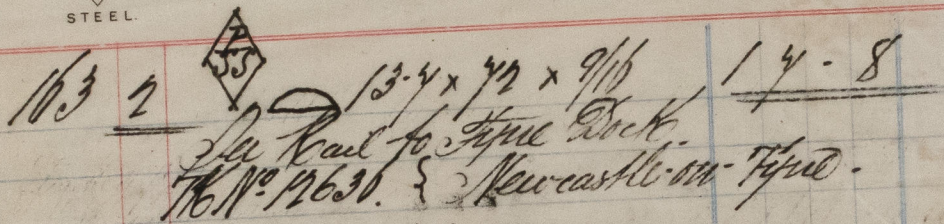 STEEL.
163 2 7 SS 13·7 x 72 x 9/16 17 - 8
Per Rail to Tyne Dock
N° 12630. { Newcastle-on-Tyne.